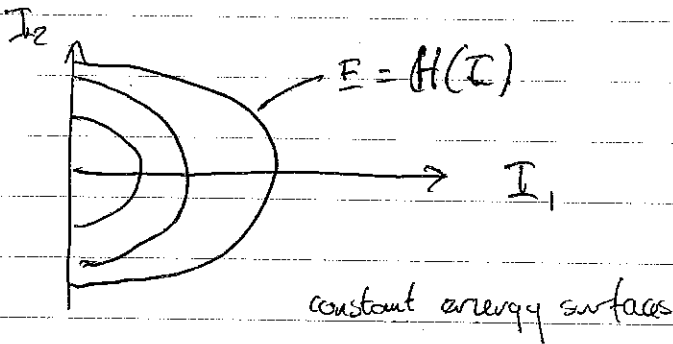 I₂
E = H(I)
I₁
constant energy surfaces